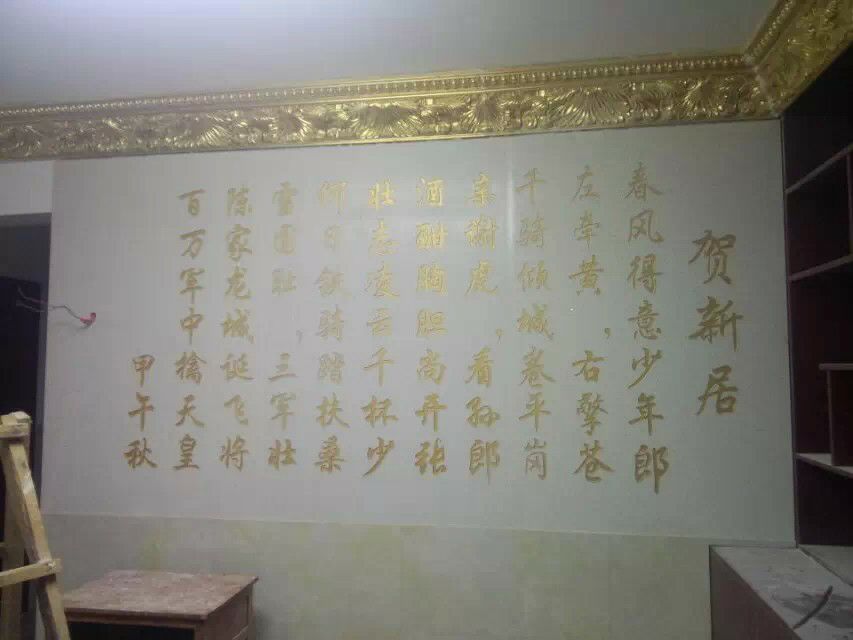 贺新居
春风得意少年郎
左牵黄，右擎苍
千骑倾城卷平岗
亲谢虎，看孙郎
酒酣胸胆尚开张
壮志凌云千杯少
何日铁骑踏扶桑
雪国耻，三军壮
陈家龙城诞飞将
百万军中擒天皇
甲午秋